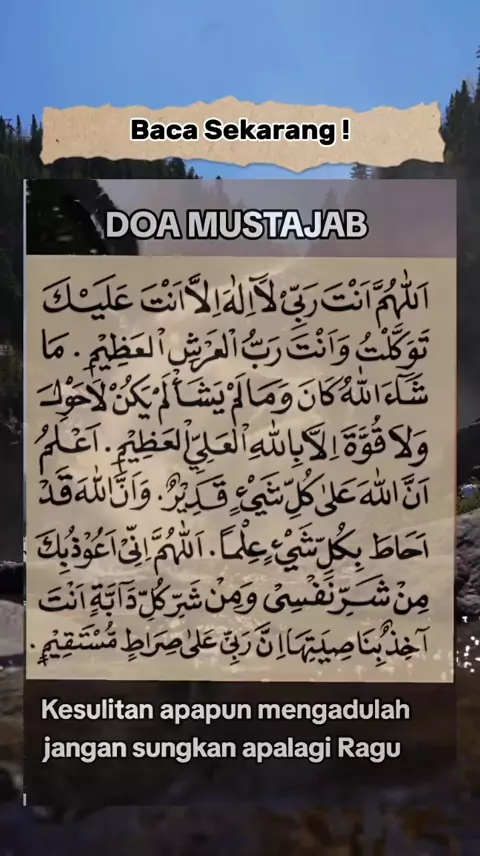 Baca Sekarang !
DOA MUSTAJAB
اَللّٰهُمَّ اَنْتَ رَبِّيْ لَآ اِلٰهَ اِلَّا اَنْتَ عَلَيْكَ
تَوَكَّلْتُ وَاَنْتَ رَبُّ الْعَرْشِ الْعَظِيْمِ . مَا
شَآءَ اللهُ كَانَ وَمَا لَمْ يَشَأْ لَمْ يَكُنْ لَاحَوْلَ
وَلَا قُوَّةَ اِلَّا بِاللهِ الْعَلِيِّ الْعَظِيْمِ . اَعْلَمُ
اَنَّ اللهَ عَلٰى كُلِّ شَيْءٍ قَدِيْرٌ . وَاَنَّ اللهَ قَدْ
اَحَاطَ بِكُلِّ شَيْءٍ عِلْمًا . اَللّٰهُمَّ اِنِّيْ اَعُوْذُبِكَ
مِنْ شَرِّ نَفْسِيْ وَمِنْ شَرِّ كُلِّ دَآبَّةٍ اَنْتَ
آخِذٌ بِنَاصِيَتِهَا اِنَّ رَبِّيْ عَلٰى صِرَاطٍ مُسْتَقِيْمٍ .
Kesulitan apapun mengadulah
jangan sungkan apalagi Ragu